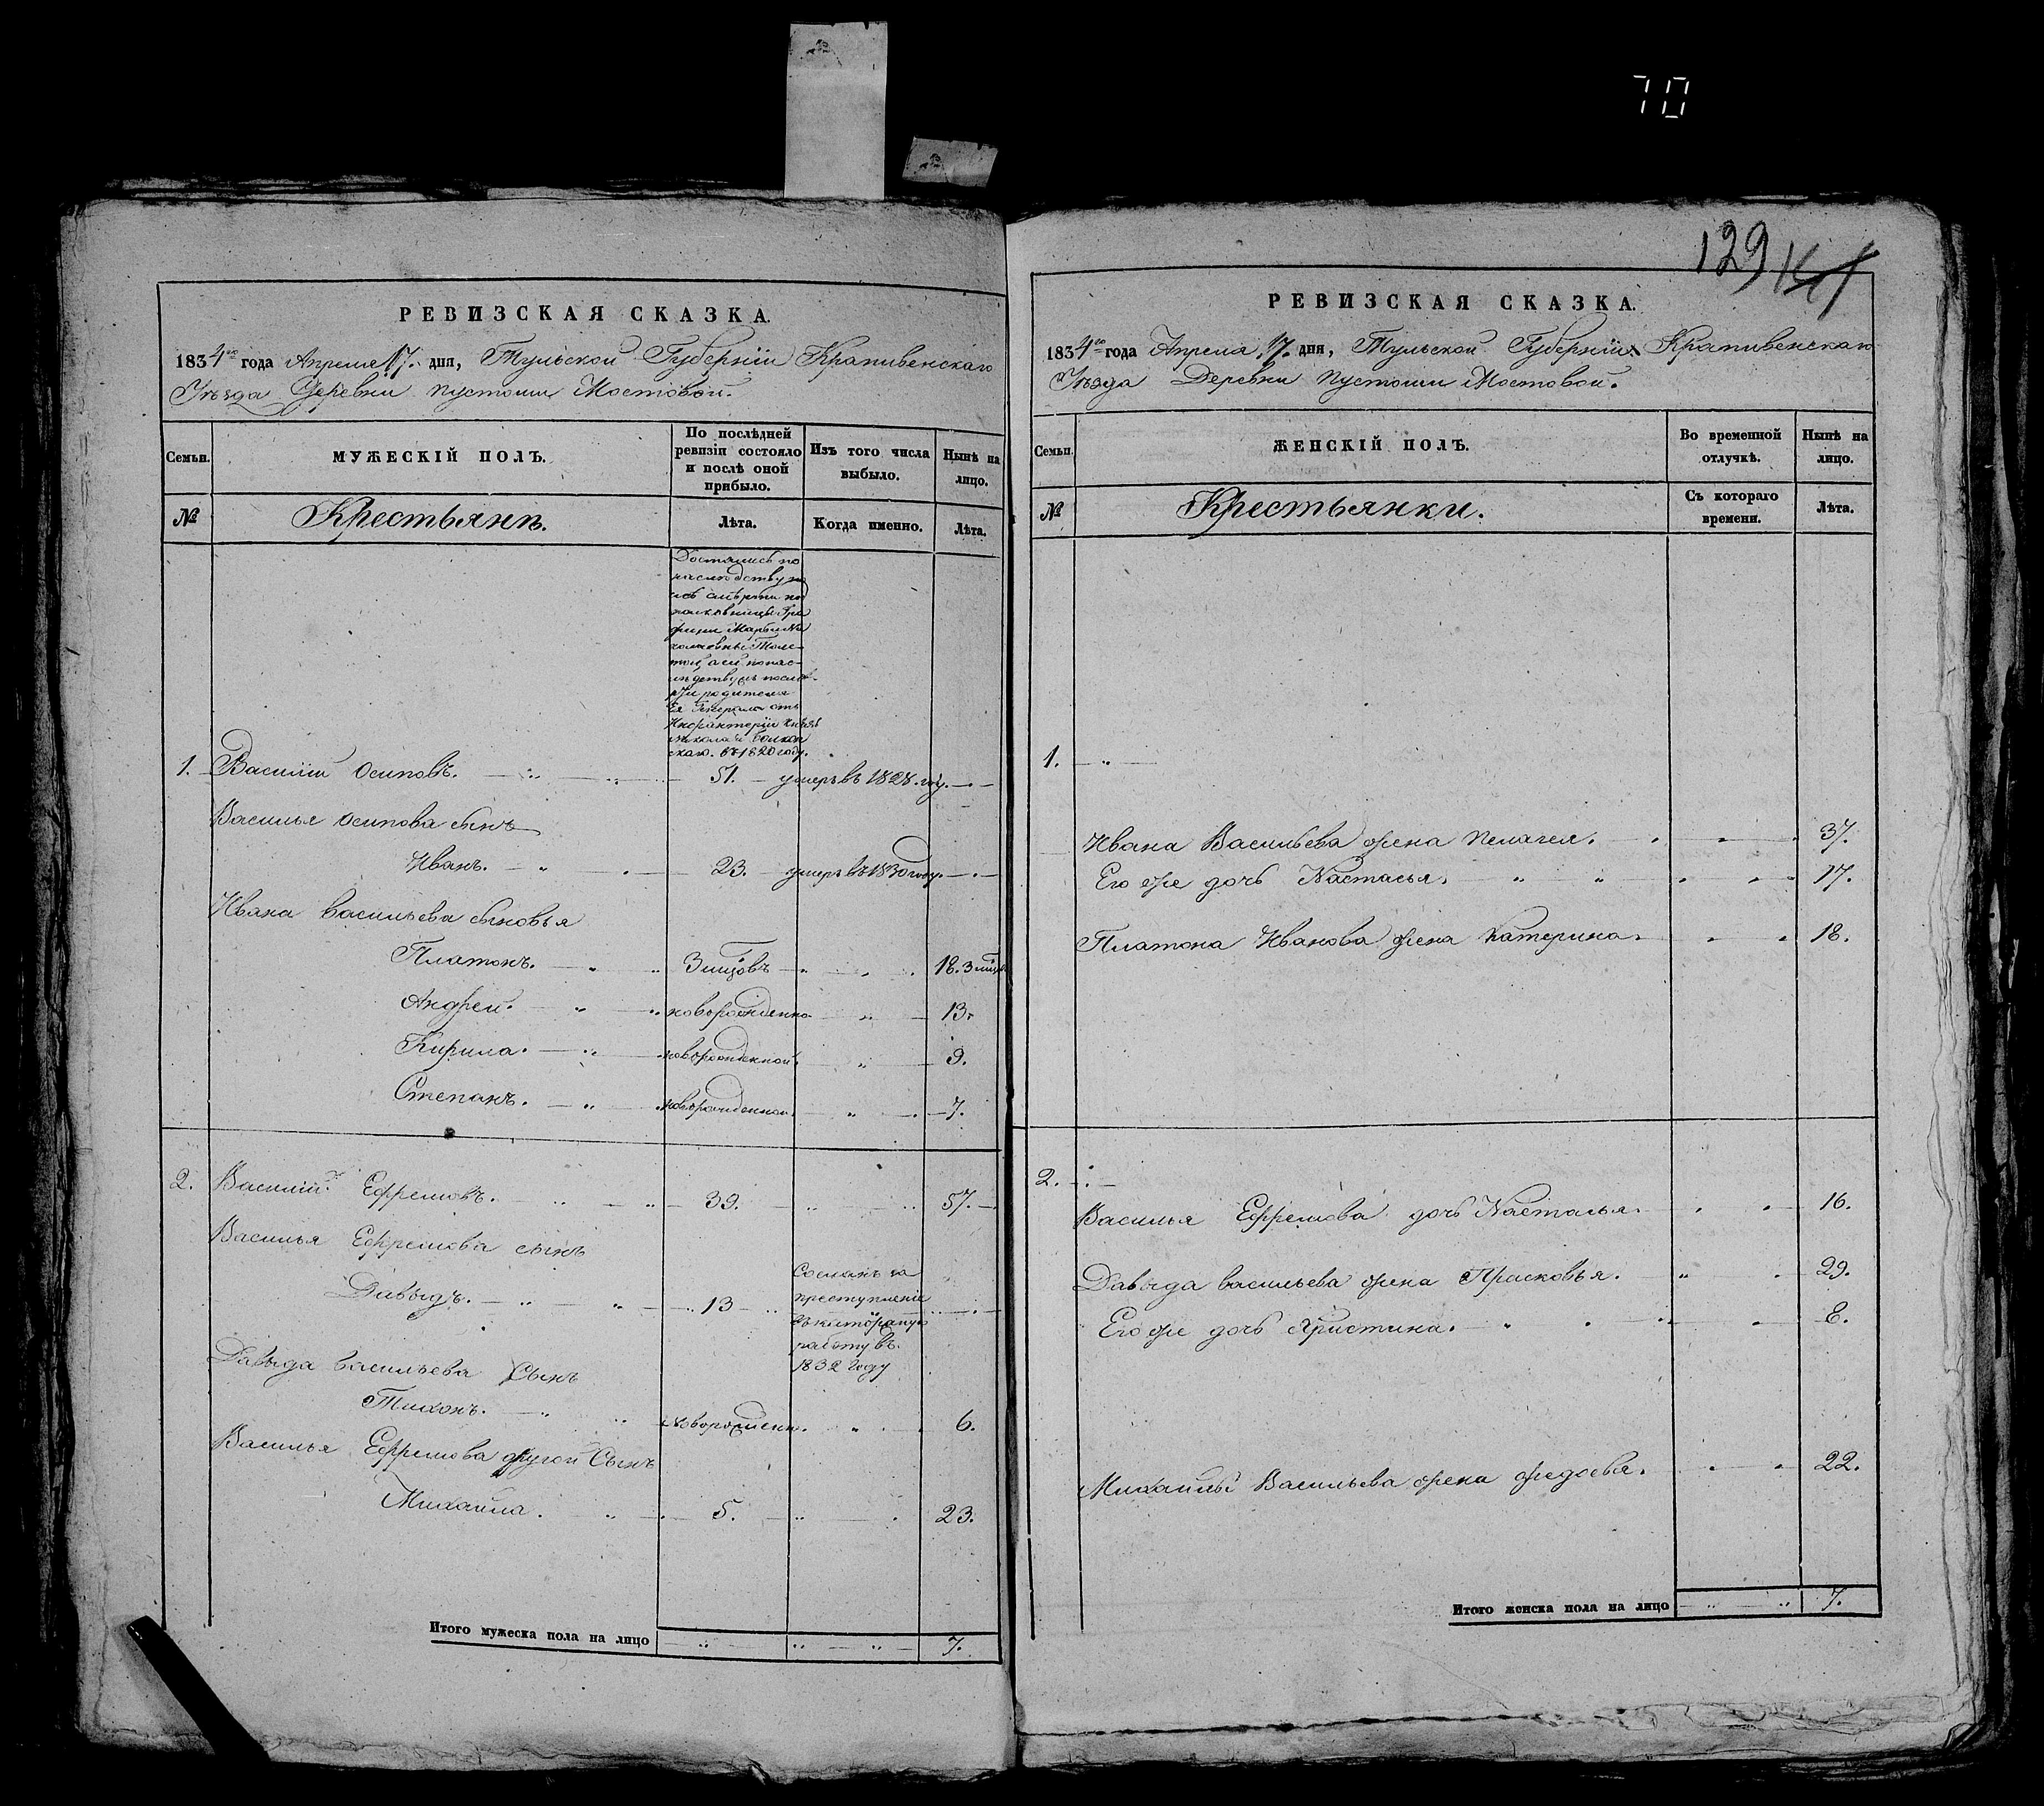 70
РЕВИЗСКАЯ СКАЗКА.
1834го года Апреля 17. дня, Тульской Губерніи Крапивенскаго
Уѣзда Деревни пустоши Мостовой.
Семьи.
МУЖЕСКІЙ ПОЛЪ.
По послѣдней
ревизіи состояло
и послѣ оной
прибыло.
Изъ того числа
выбыло.
Нынѣ на
лицо.
№
Крестьянъ.
Лѣта.
Когда именно.
Лѣта.
Достались по
наслѣдству по
слѣ смѣрти под
полковницы Гра
фини Марьи Ни
колаевны Толс
той, а ей по нас
лѣдству
родителя
Ея Генерала отъ
Инфантеріи князя
Николая Волкон
скаго. въ 1820 году.
1. Василій Осиповъ. 51. умеръ въ 1828. году.
Василья Осипова сынъ
Иванъ. 23. умеръ въ 1830 году.
Ивана Васильева сыновья
Платонъ. 3 мцовъ 18. 3 мцо
Андрей. новорожденно 13.
Кирила. новорожденной 9.
Степанъ. новорожденной 7.
2. Василій Ефремовъ. 39. 57.
Василья Ефремова сынъ
Давыдъ. 13
Сосланъ за
преступленіе
въ каторжную
работу въ
1832 году
Давыда Васильева Сынъ
Тихонъ. новорожденн. 6.
Василья Ефремова другой Сынъ
Михайла. 5. 23.
Итого мужеска пола на лицо 7.
129
РЕВИЗСКАЯ СКАЗКА.
1834го года Апреля 17. дня, Тульской Губерніи Крапивенскаго
Уѣзда Деревни пустоши Мостовой.
Семьи.
ЖЕНСКІЙ ПОЛЪ.
Во временной
отлучкѣ.
Нынѣ на
лицо.
№
Крестьянки.
Съ котораго
времени.
Лѣта.
1.
Ивана Васильева жена Пелагея. 37.
Его же дочь Настасья. 17.
Платона Иванова жена Катерина. 18.
2.
Василья Ефремова дочь Настасья. 16.
Давыда Васильева жена Прасковья. 29.
Его же дочь Христина. 8.
Михайлы Васильева жена Федосья. 22.
Итого женска пола на лицо 7.